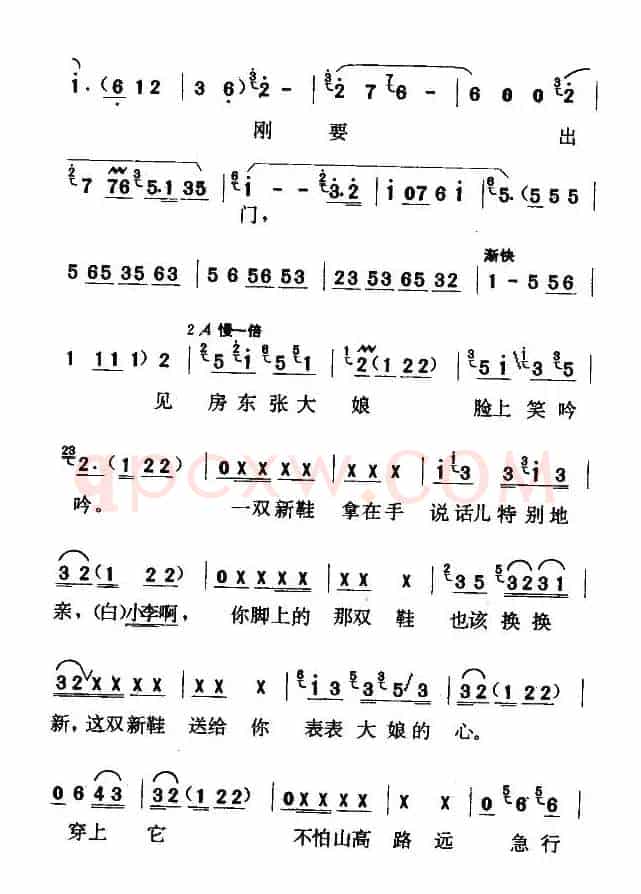 i·(6 12 | 3 6)2- | 2 7 6 - | 6 0 0 2 |
刚 要 出
7 76 5·1 35 | i - - 3·2 | i 076 i | 5·(5 5 5
门,
渐快
5 65 35 63 | 5 6 56 53 | 23 53 65 32 | 1 - 5 56 |
2A慢一倍
1 11 1) 2 | 5 i 5 1 | 2(1 22) | 5 i 3 5 |
见 房东张大 娘 脸上笑吟
2·(1 22) | 0X X X X | X X X | i3 3 i3 |
吟。 一双新鞋 拿在手 说话儿特别地
qpcxw.COM
32(1 22) | 0X X X X | XX X | 35 3231 |
亲,(白)小李啊, 你脚上的 那双 鞋 也该 换换
32 X X X X | X X X | i3 3 5/3 | 32(1 22) |
新,这双新鞋 送给 你 表表大娘的 心。
0 6 43 | 32(1 22) | 0X X X X | X X X | 0 6 6 |
穿上 它 不怕山高 路 远 急行